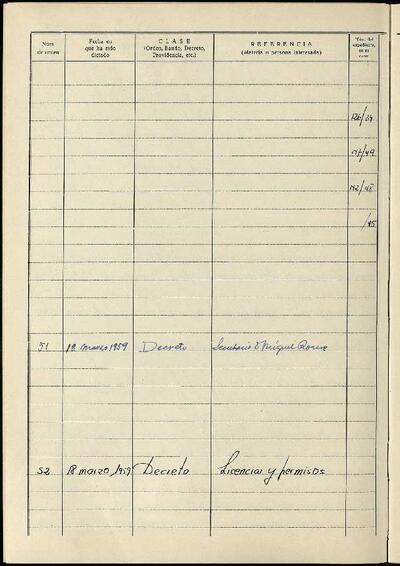 Núm. de orden
Fecha en que ha sido dictado
CLASE
(Orden, Bando, Decreto, Providencia, etc.)
REFERENCIA
(Materia o persona interesada)
Núm. del expediente, en su caso
/45
51 18 marzo 1959 Decreto Secretario D Miguel
52 18 marzo 1959 Decreto Licencias y permisos